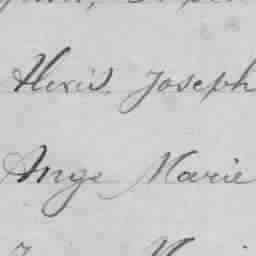 Alexis Joseph
Ange Marie